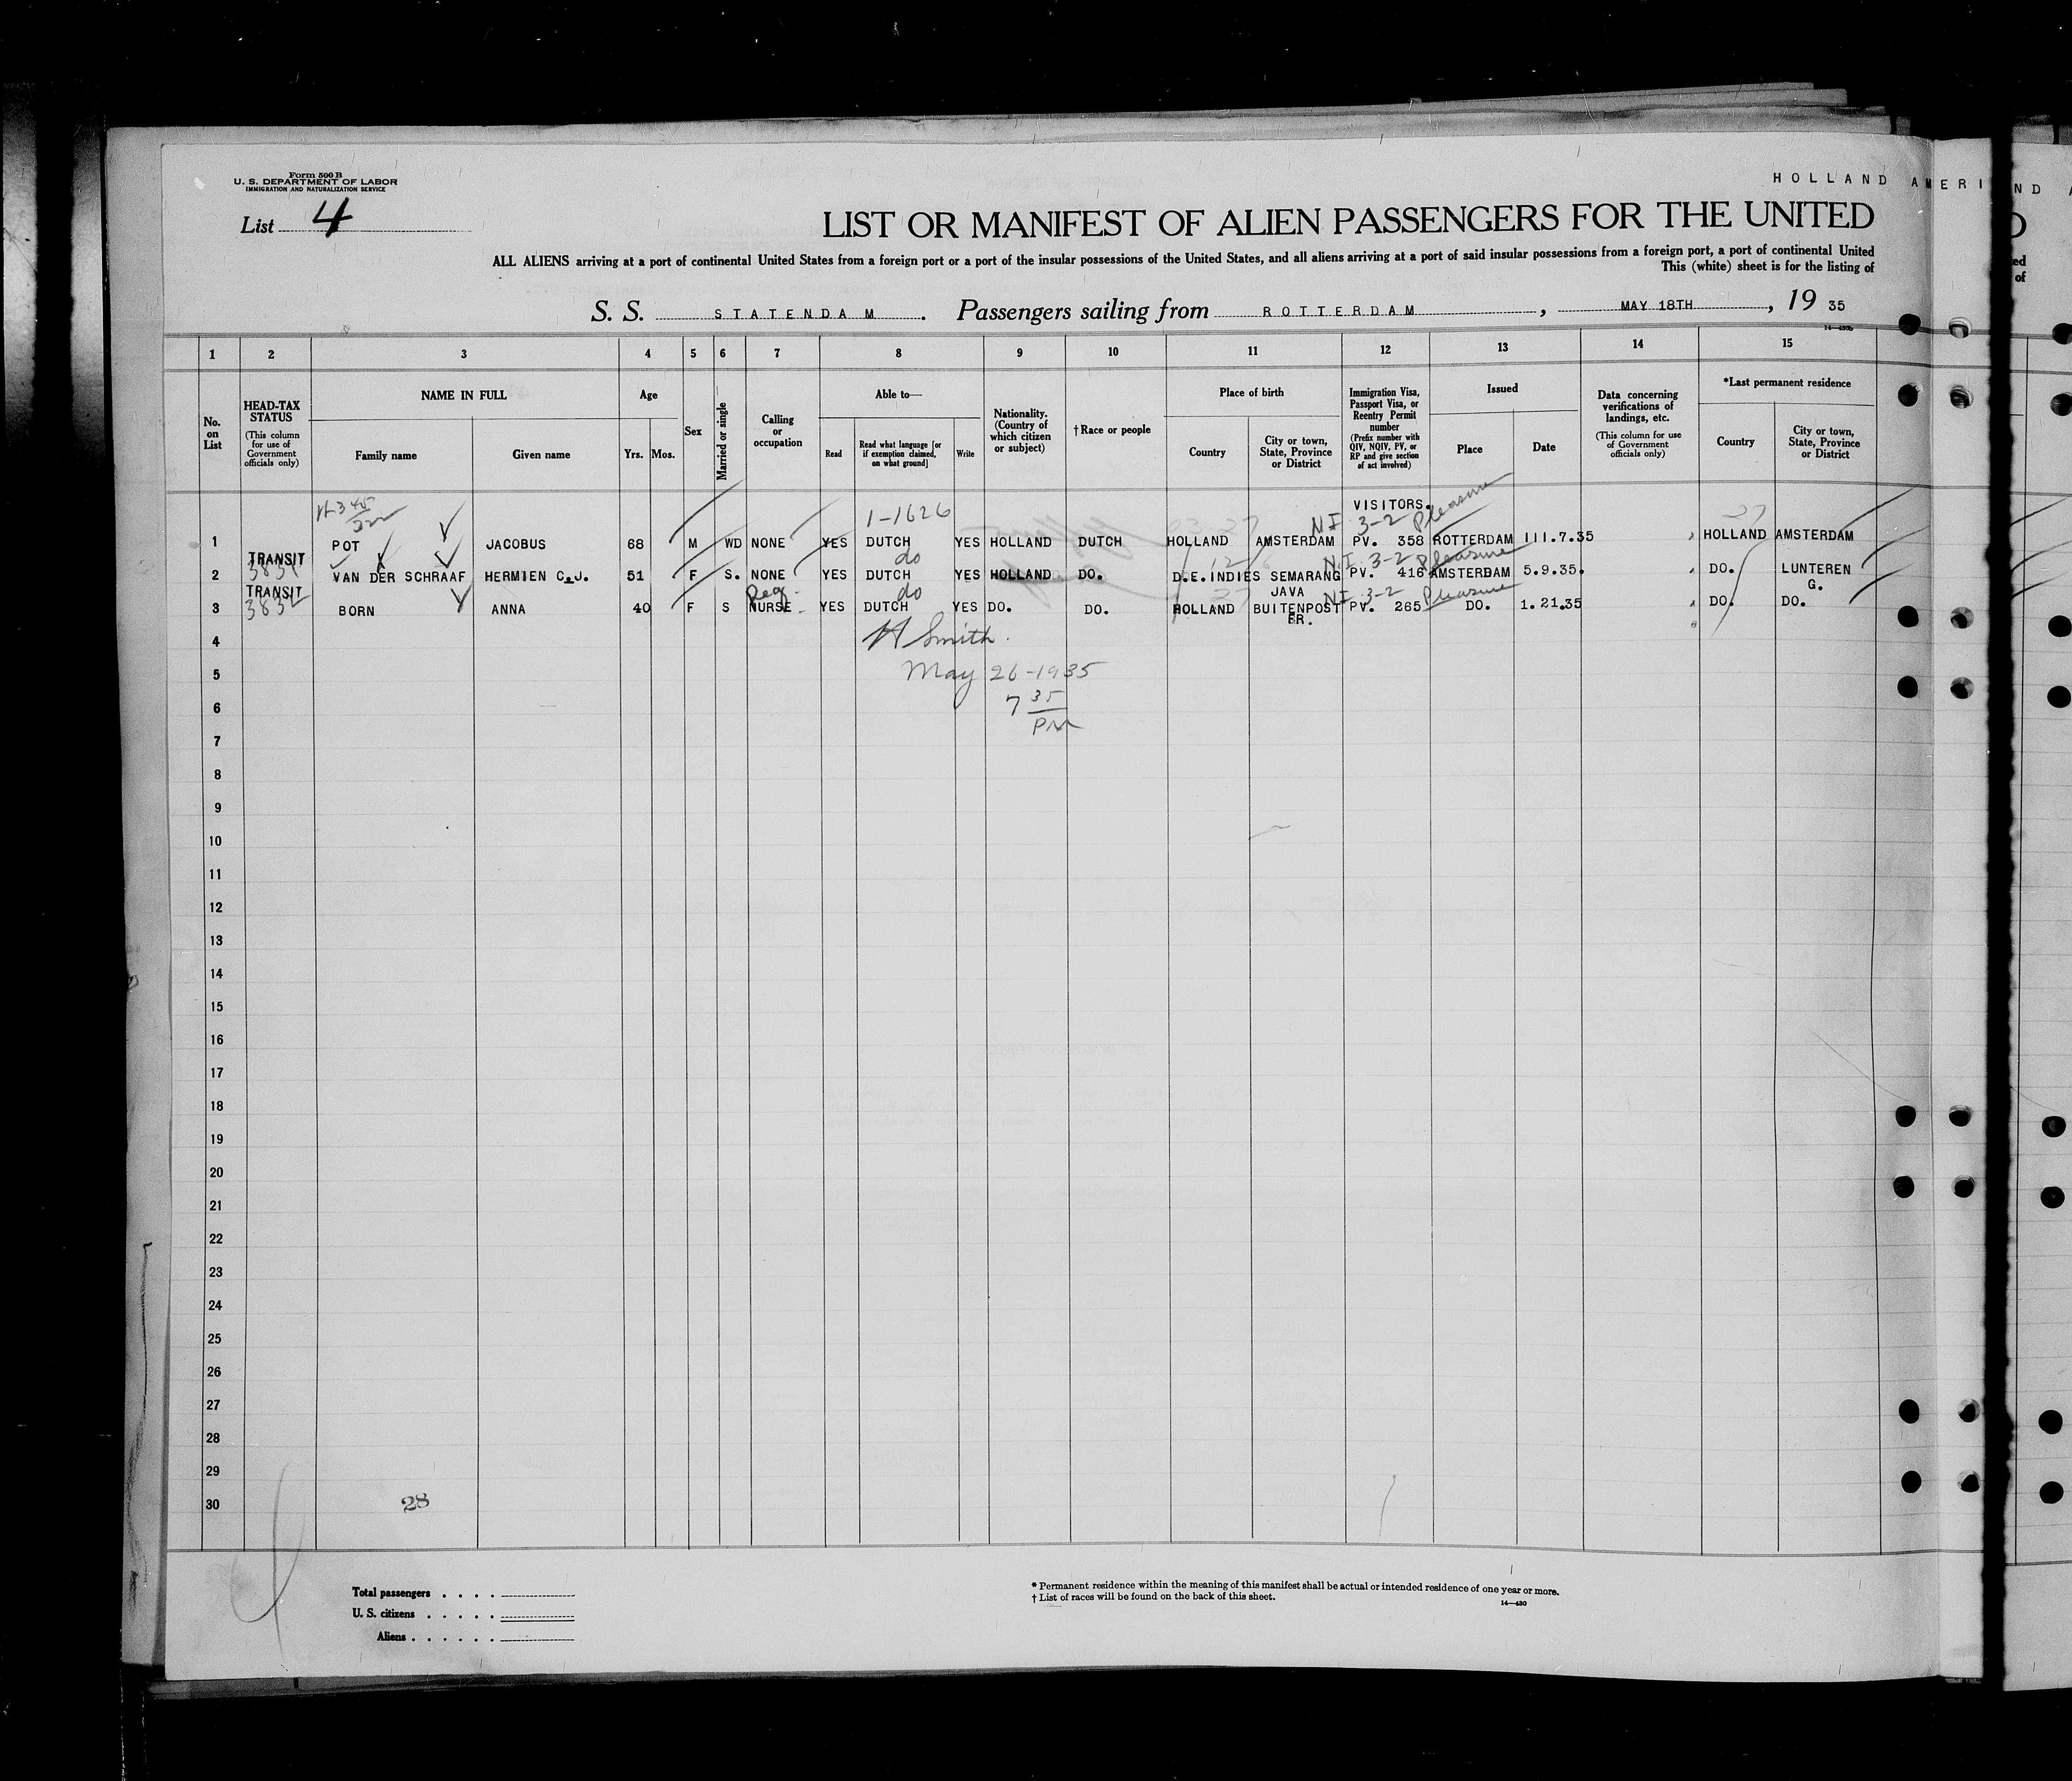 Form 500 B
U. S. DEPARTMENT OF LABOR
IMMIGRATION AND NATURALIZATION SERVICE
HOLLAND AMERI
ND
List 4
LIST OR MANIFEST OF ALIEN PASSENGERS FOR THE UNITED
ALL ALIENS arriving at a port of continental United States from a foreign port or a port of the insular possessions of the United States, and all aliens arriving at a port of said insular possessions from a foreign port, a port of continental United
This (white) sheet is for the listing of
ed
of
S. S. STATENDAM. Passengers sailing from ROTTERDAM, MAY 18TH, 1935
14—430b
1 2 3 4 5 6 7 8 9 10 11 12 13 14 15
No. on List
HEAD-TAX STATUS
(This column for use of Government officials only)
NAME IN FULL
Family name
Given name
Age
Yrs. Mos.
Sex
Married or single
Calling or occupation
Able to—
Read
Read what language [or if exemption claimed, on what ground]
Write
Nationality. (Country of which citizen or subject)
†Race or people
Place of birth
Country
City or town, State, Province or District
Immigration Visa, Passport Visa, or Reentry Permit number
(Prefix number with QIV, NQIV, PV, or RP and give section of act involved)
Issued
Place
Date
Data concerning verifications of landings, etc.
(This column for use of Government officials only)
*Last permanent residence
Country
City or town, State, Province or District
1-1626 VISITORS.
NI 3-2 Pleasure
27
1 POT JACOBUS 68 M WD NONE YES DUTCH YES HOLLAND DUTCH HOLLAND AMSTERDAM PV. 358 ROTTERDAM 111.7.35 HOLLAND AMSTERDAM
TRANSIT do N.I. 3-2 Pleasure
2 3831 VAN DER SCHRAAF HERMIEN C.J. 51 F S. NONE YES DUTCH YES HOLLAND DO. D.E.INDIES SEMARANG PV. 416 AMSTERDAM 5.9.35. DO. LUNTEREN
TRANSIT do JAVA NI 3-2 Pleasure G.
3 3832 BORN ANNA 40 F S NURSE YES DUTCH YES DO. DO. HOLLAND BUITENPOST PV. 265 DO. 1.21.35 DO. DO.
FR.
4 H Smith.
5 May 26-1935
6 7 35
PM
7
8
9
10
11
12
13
14
15
16
17
18
19
20
21
22
23
24
25
26
27
28
29
30 28
Total passengers . . . .
U. S. citizens . . . . .
Aliens . . . . . .
* Permanent residence within the meaning of this manifest shall be actual or intended residence of one year or more.
† List of races will be found on the back of this sheet.
14—430